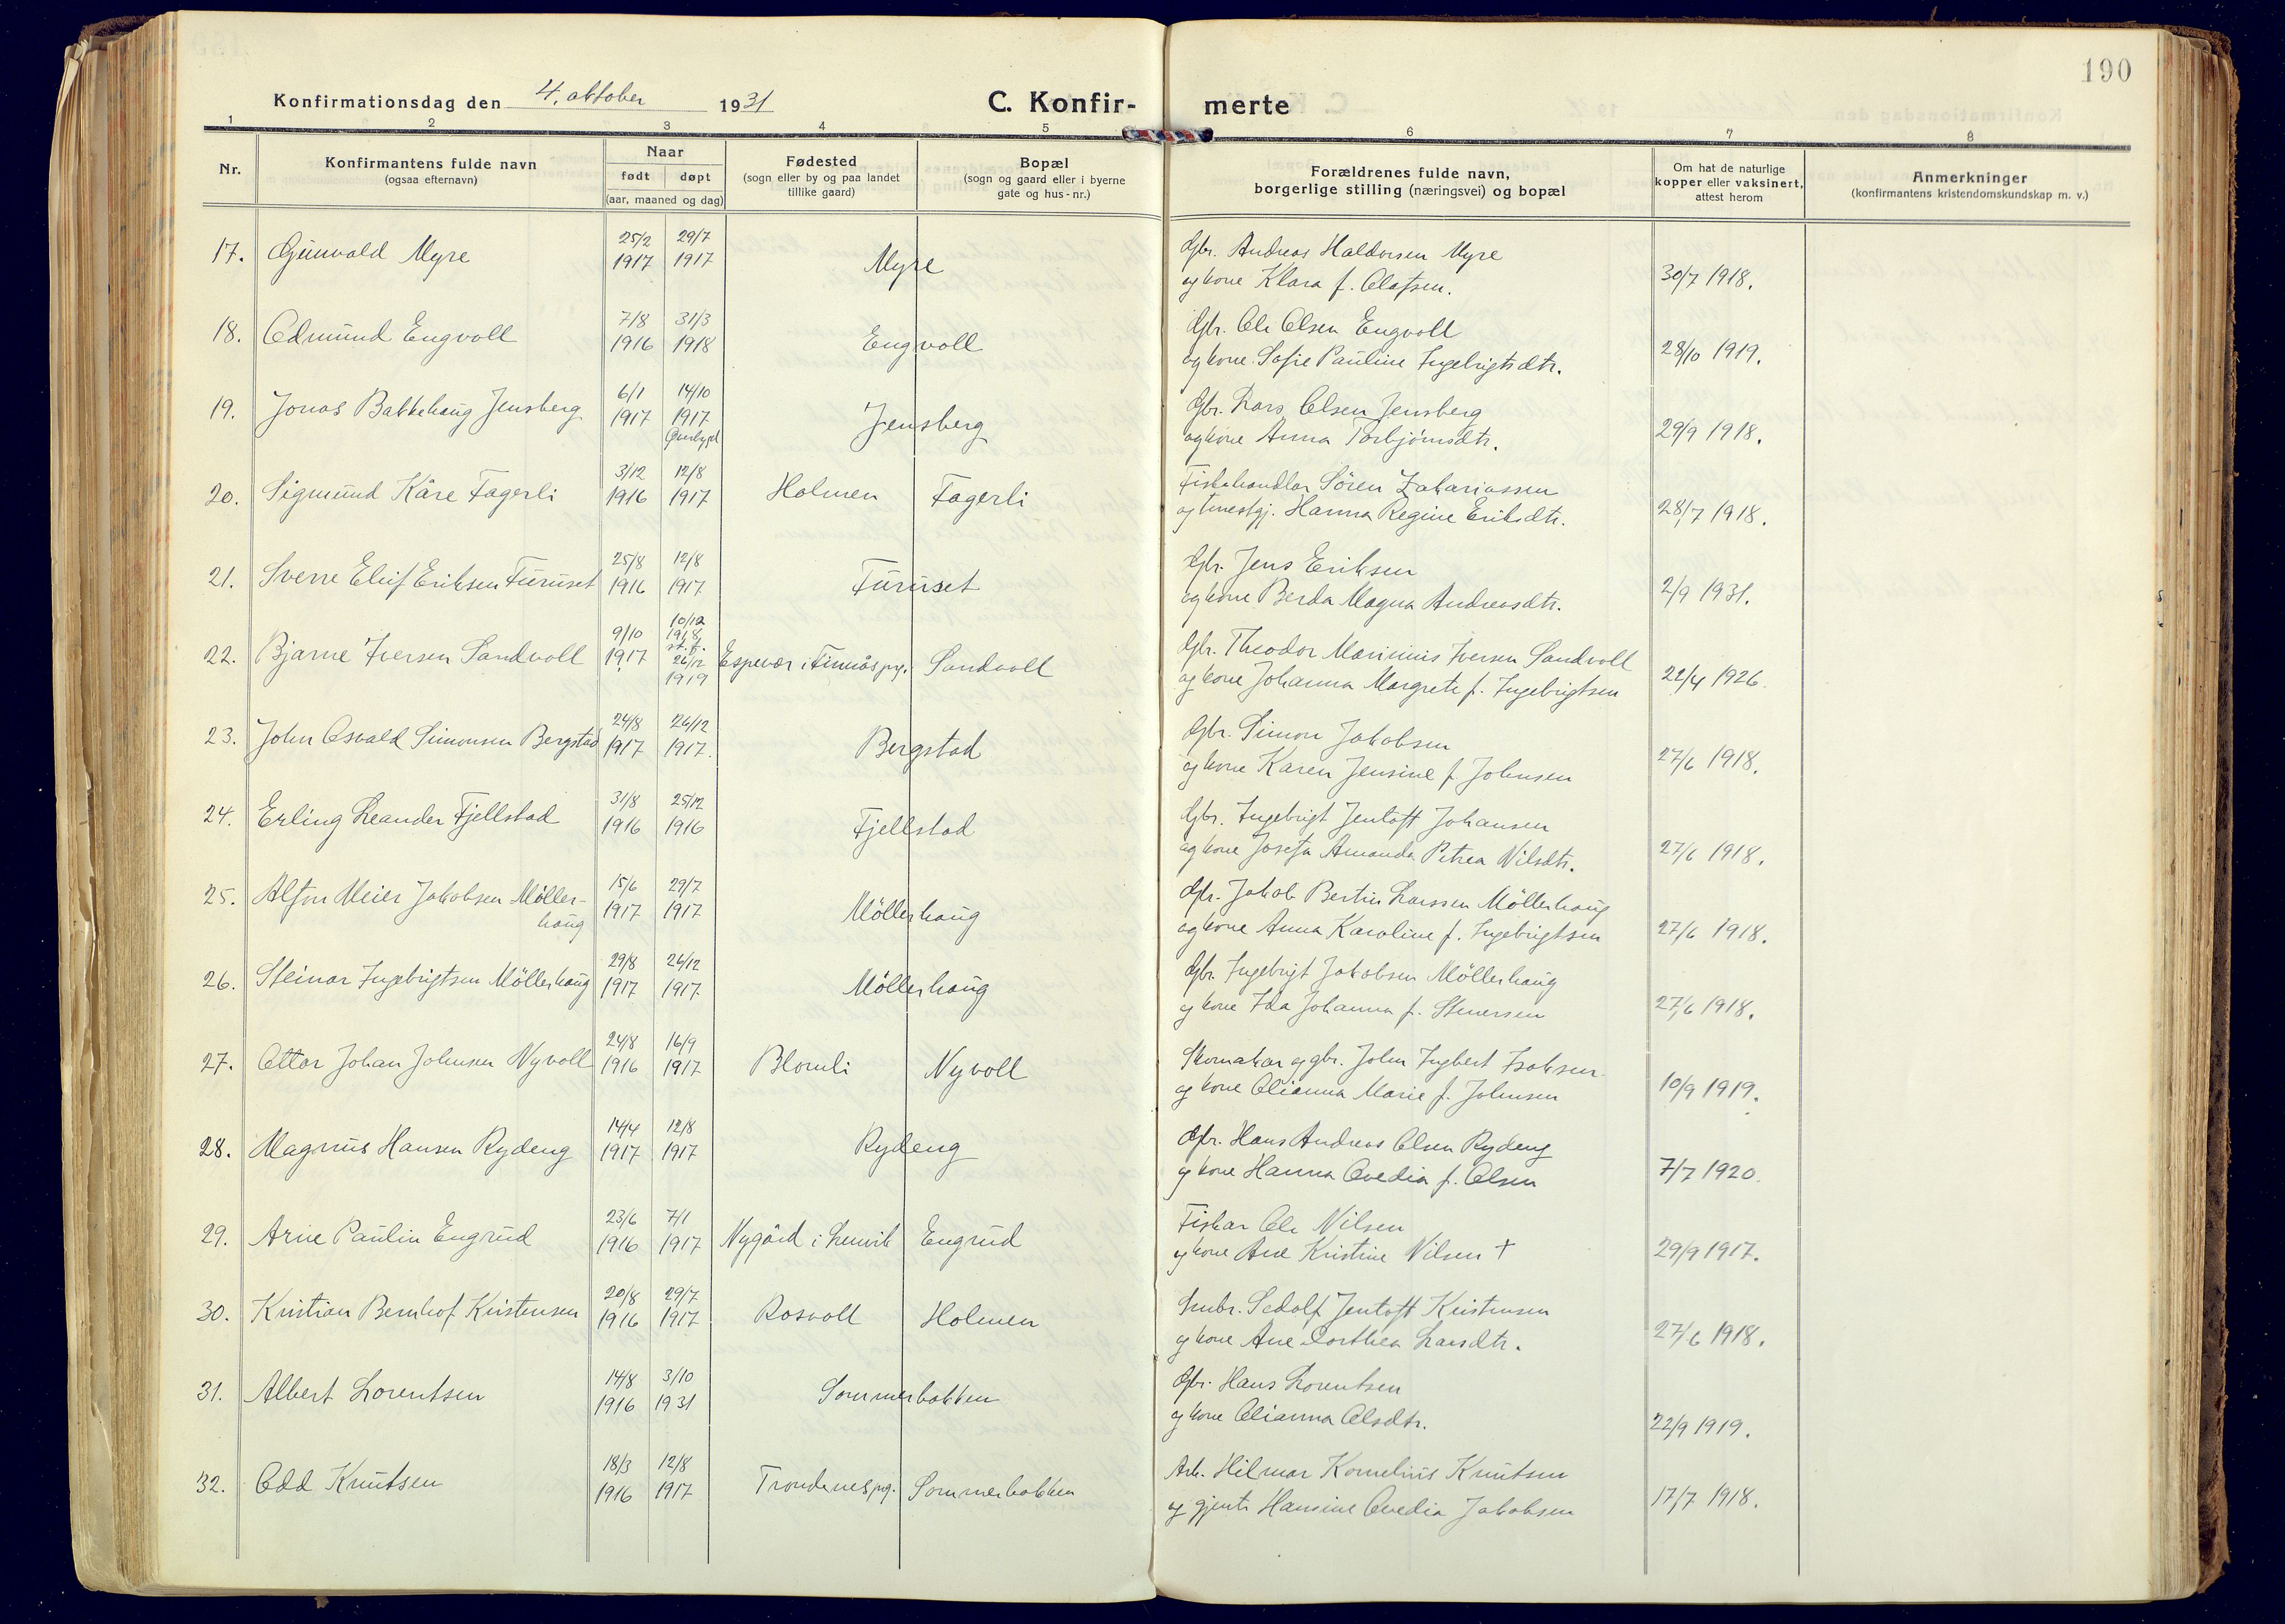 190
Konfirmationsdag den 4. oktober 1931
C. Konfirmerte
1 2 3 4 5 6 7 8
Nr.
Konfirmantens fulde navn
(ogsaa efternavn)
Naar
født døpt
(aar, maaned og dag)
Fødested
(sogn eller by og paa landet
tillike gaard)
Bopæl
(sogn og gaard eller i byerne
gate og hus-nr.)
Forældrenes fulde navn,
borgerlige stilling (næringsvei) og bopæl
Om hat de naturlige
kopper eller vaksinert,
attest herom
Anmerkninger
(konfirmantens kristendomskundskap m. v.)
17. Gunvald Myre 25/2 1917 29/7 1917 Myre
Gbr. Andreas Haldorsen Myre
og kone Klara f. Olafsen. 30/7 1918.
18. Edmund Engvoll 7/8 1916 31/3 1918 Engvoll
Gbr. Ole Olsen Engvoll
og kone Sofie Pauline Ingebrigtsdtr. 28/10 1919.
19. Jonas Bakkehaug Jensberg 6/1 1917 14/10 1917 Jensberg
Gbr. Lars Olsen Jensberg
og kone Anna Torbjørnsdtr. 29/9 1918.
20. Sigmund Kåre Fagerli 3/12 1916 12/8 1917 Holmen Fagerli
Fiskehandler Sören Zakariassen
og tenestgj. Hanna Regine Eriksdtr. 28/7 1918.
21. Sverre Eluf Eriksen Furuset 25/8 1916 12/8 1917 Furuset
Gbr. Jens Eriksen
og kone Berda Magna Andreasdtr. 2/9 1931.
22. Bjarne Iversen Sandvoll 9/10 1917 10/12 1918 st. f. 26/12 1919 Espevær i Finnås prg. Sandvoll
Gbr. Theodor Marinius Iversen Sandvoll
og kone Johanna Margrete f. Ingebrigtsen 22/4 1926.
23. John Osvald Simonsen Bergstad 24/8 1917 26/12 1917. Bergstad
Gbr. Simon Jakobsen
og kone Karen Jensine f. Johnsen 27/6 1918.
24. Erling Leander Fjellstad 31/8 1916 25/12 1916 Fjellstad
Gbr. Ingebrigt Jentoft Johansen
og kone Josefa Amanda Petrea Nilsdtr. 27/6 1918.
25. Alfon Meier Jakobsen Möller-
haug 15/6 1917 29/7 1917 Möllerhaug
Gbr. Jakob Bertin Larssen Möllerhaug
og kone Anna Karoline f. Ingebrigtsen 27/6 1918.
26. Steinar Ingebrigtsen Möllerhaug 29/8 1917 26/12 1917. Möllerhaug
Gbr. Ingebrigt Jakobsen Möllerhaug
og kone Ida Johanna f. Stenersen 27/6 1918.
27. Ottar Johan Johnsen Nyvoll 24/8 1916 16/9 1917 Blomli Nyvoll
Skomakar og gbr. John Ingbert Isaksen
og kone Olianna Marie f. Johnsen 10/9 1919.
28. Magnus Hansen Rydeng 14/4 1917 12/8 1917 Rydeng
Gbr. Hans Andreas Olsen Rydeng
og kone Hanna Ovedia f. Olsen 7/7 1920.
29. Arne Paulin Engrud 23/6 1916 7/1 1917 Nygård i Lenvik Engrud
Fiskar Ole Nilsen
og kone Ane Kristine Nilsen † 29/9 1917.
30. Kristian Bernhof Kristensen 20/8 1916 29/7 1917 Rosvoll Holmen
Snubr. Sedolf Jentoft Kristensen
og kone Ane Dorthea Larsdtr. 27/6 1918.
31. Albert Lorentsen 14/8 1916 3/10 1931 Sommerbakken
Gbr. Hans Lorentsen
og kone Olianna Olsdtr. 22/9 1919.
32. Odd Knutsen 18/3 1916 12/8 1917 Trondenes prg. Sommerbakken
Arb. Hilmar Kornelius Knutsen
og gjente Hansine Ovedia Jakobsen 17/7 1918.